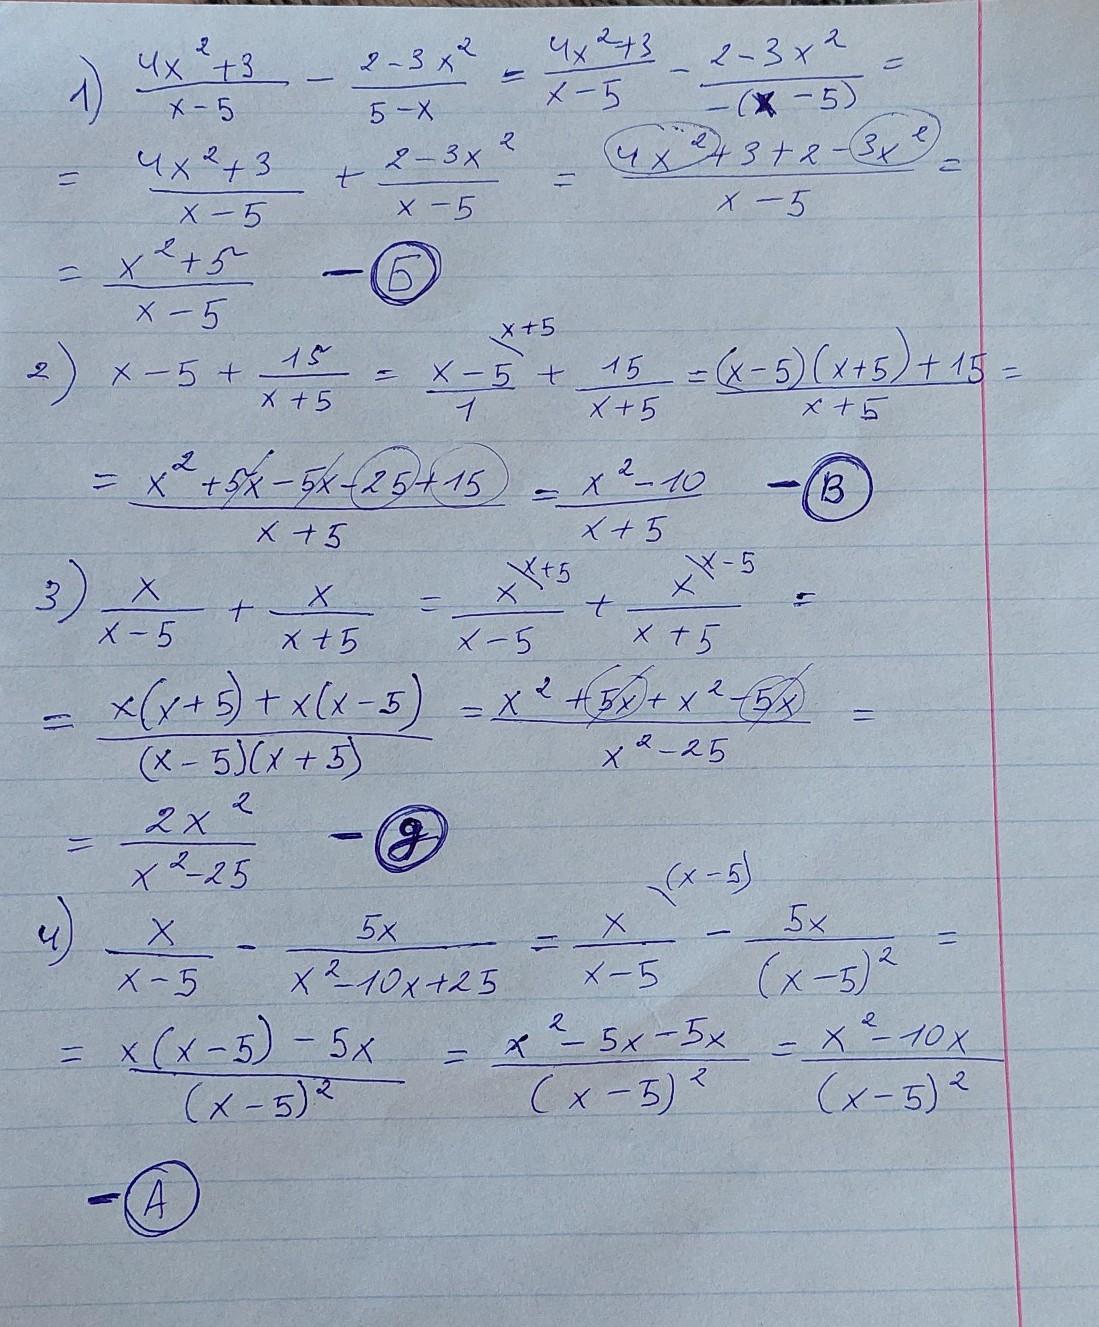 1) (4x²+3)/(x-5) - (2-3x²)/(5-x) = (4x²+3)/(x-5) - (2-3x²)/(-(x-5)) =
= (4x²+3)/(x-5) + (2-3x²)/(x-5) = (4x²+3+2-3x²)/(x-5) =
= (x²+5)/(x-5) - Б
2) x-5 + 15/(x+5) = (x-5)/1 \x+5 + 15/(x+5) = ((x-5)(x+5)+15)/(x+5) =
= (x²+5x-5x-25+15)/(x+5) = (x²-10)/(x+5) - В
3) x/(x-5) + x/(x+5) = x\x+5/(x-5) + x\x-5/(x+5) =
= (x(x+5)+x(x-5))/((x-5)(x+5)) = (x²+5x+x²-5x)/(x²-25) =
= 2x²/(x²-25) - д
4) x/(x-5) - 5x/(x²-10x+25) = x/(x-5) \(x-5) - 5x/(x-5)² =
= (x(x-5)-5x)/(x-5)² = (x²-5x-5x)/(x-5)² = (x²-10x)/(x-5)²
- А